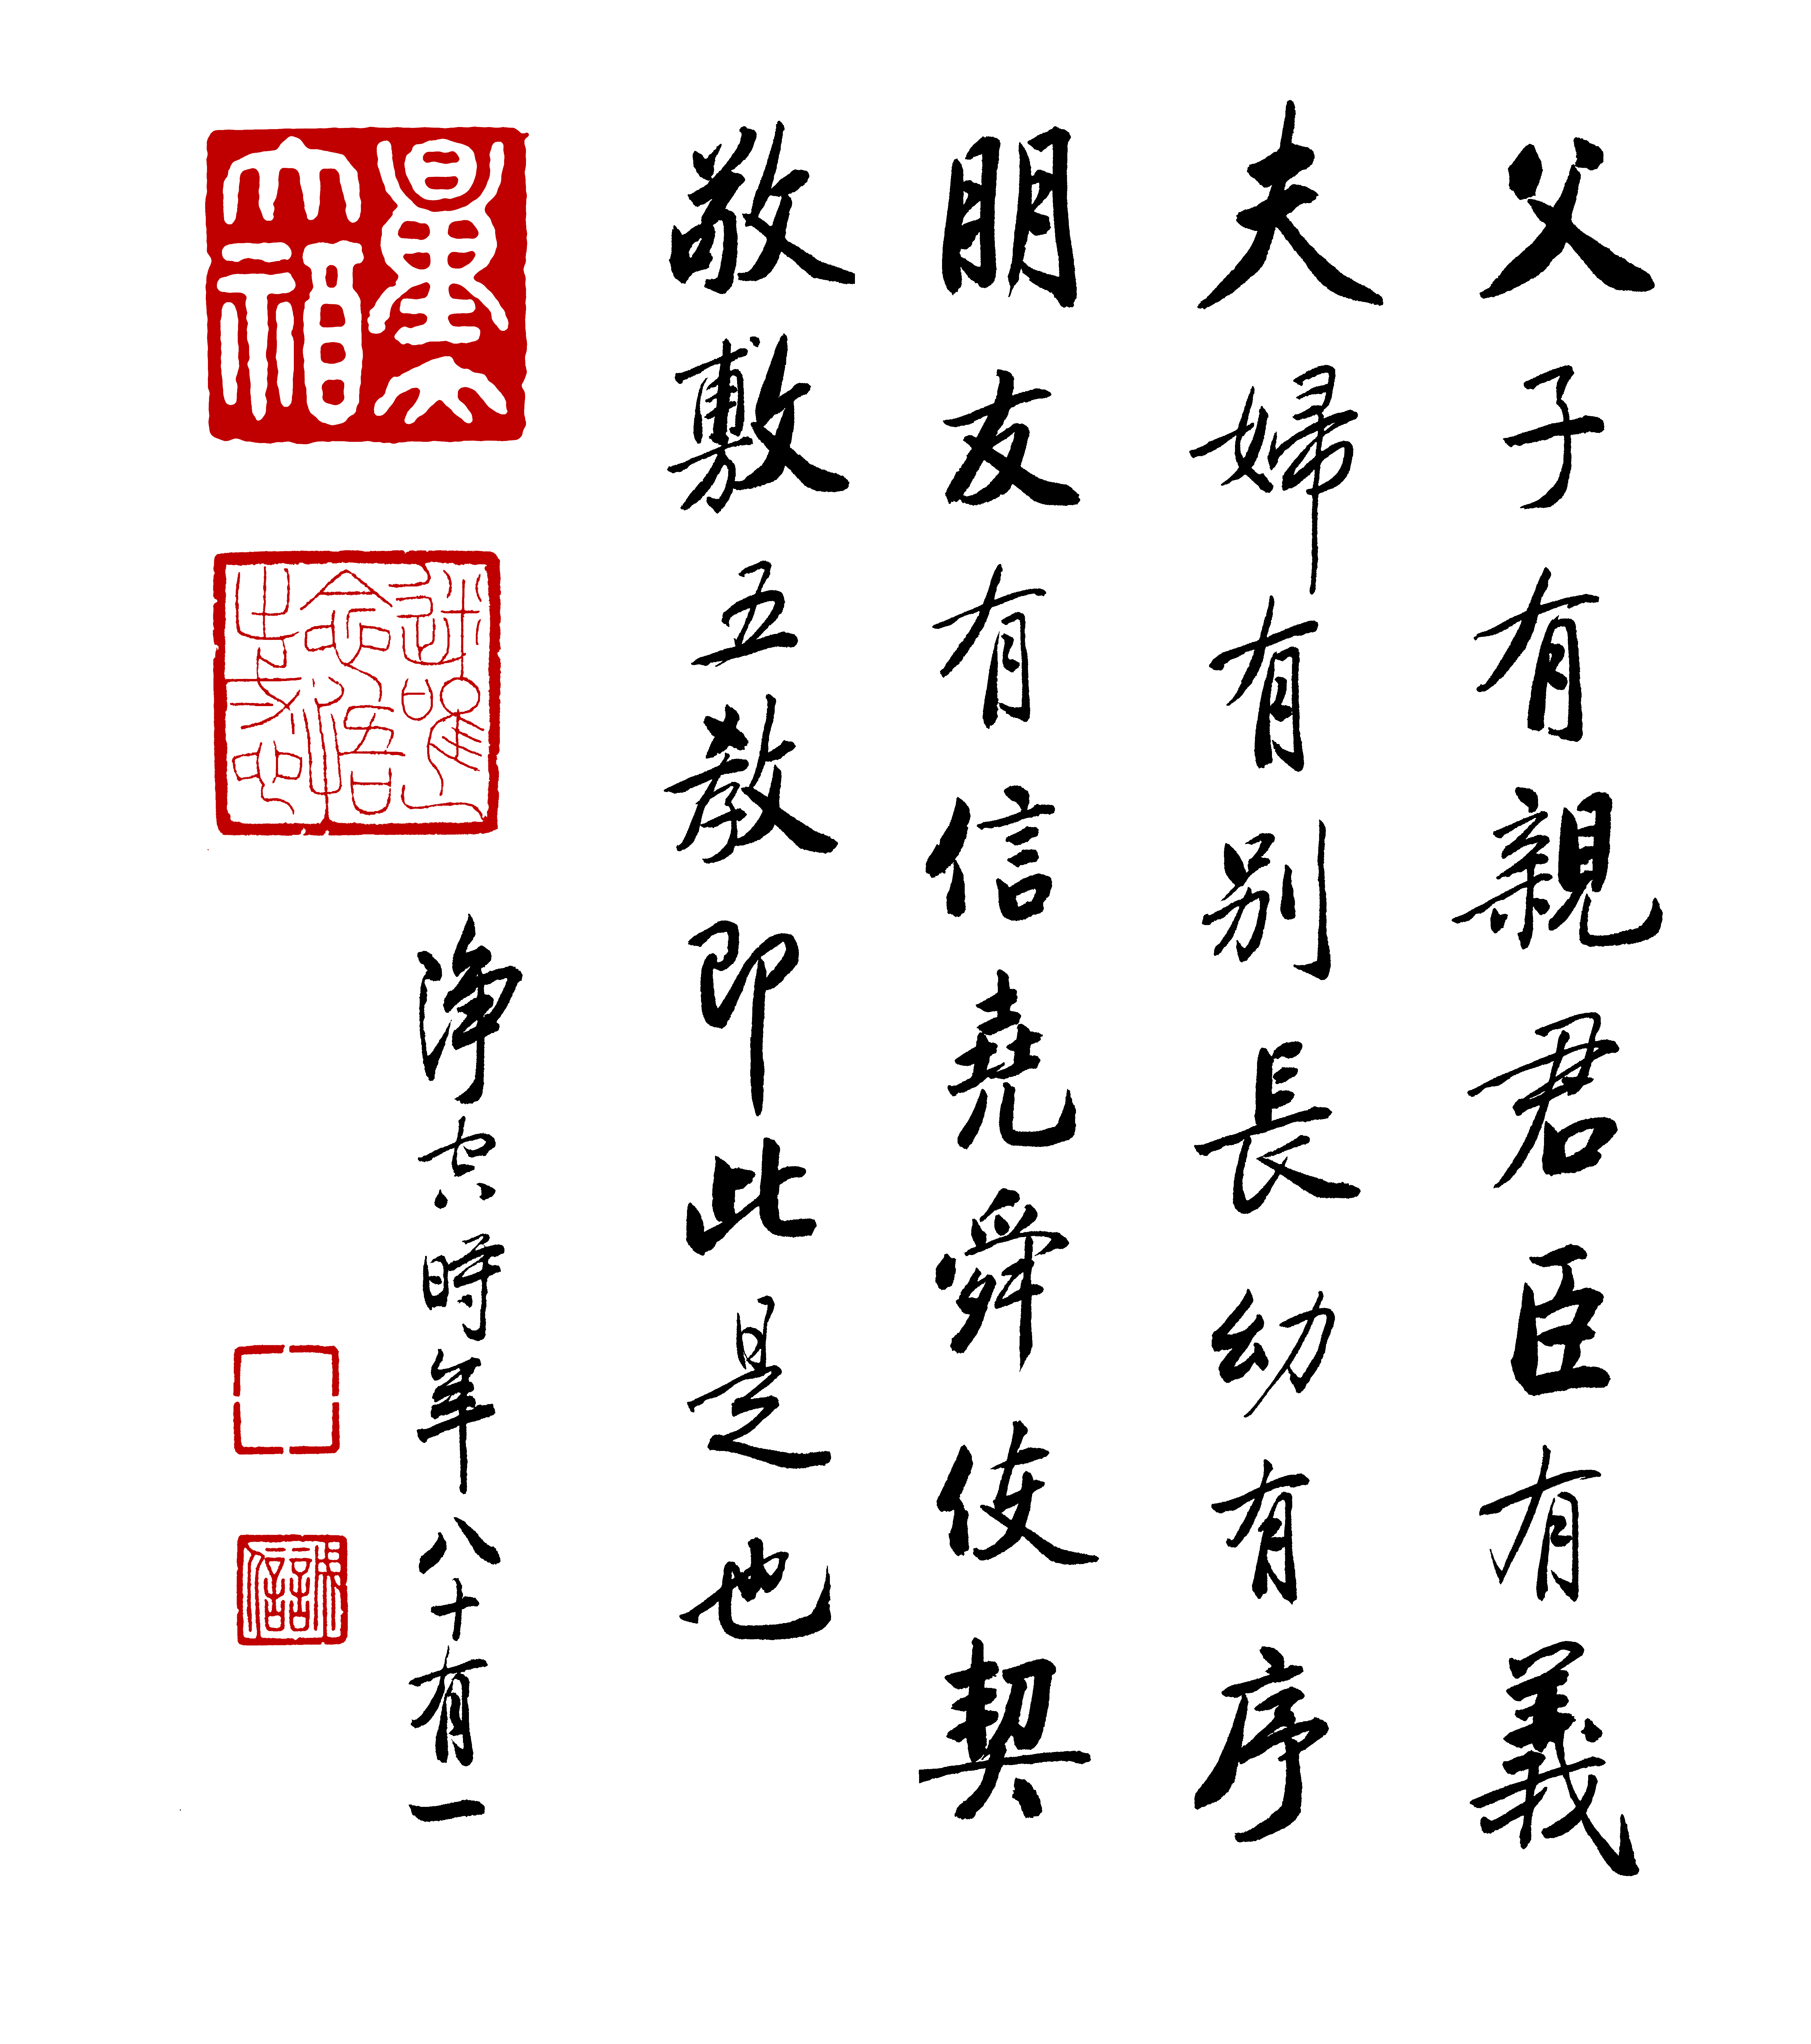 父子有親君臣有義
夫婦有別長幼有序
朋友有信堯舜使契
敬敷五教即此是也
淨空時年八十有一